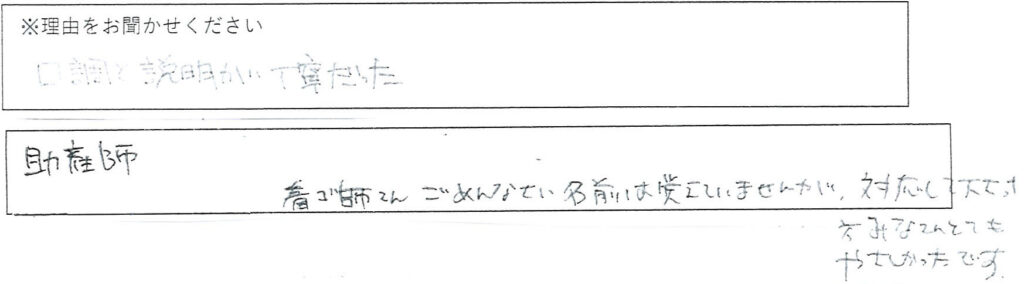 ※理由をお聞かせください
口調と説明がいて寧だった
助産師
看ゴ師さん ごめんなさい 名前は覚えていませんが、対応して下さっ
たみなさんとても
やさしかったです。